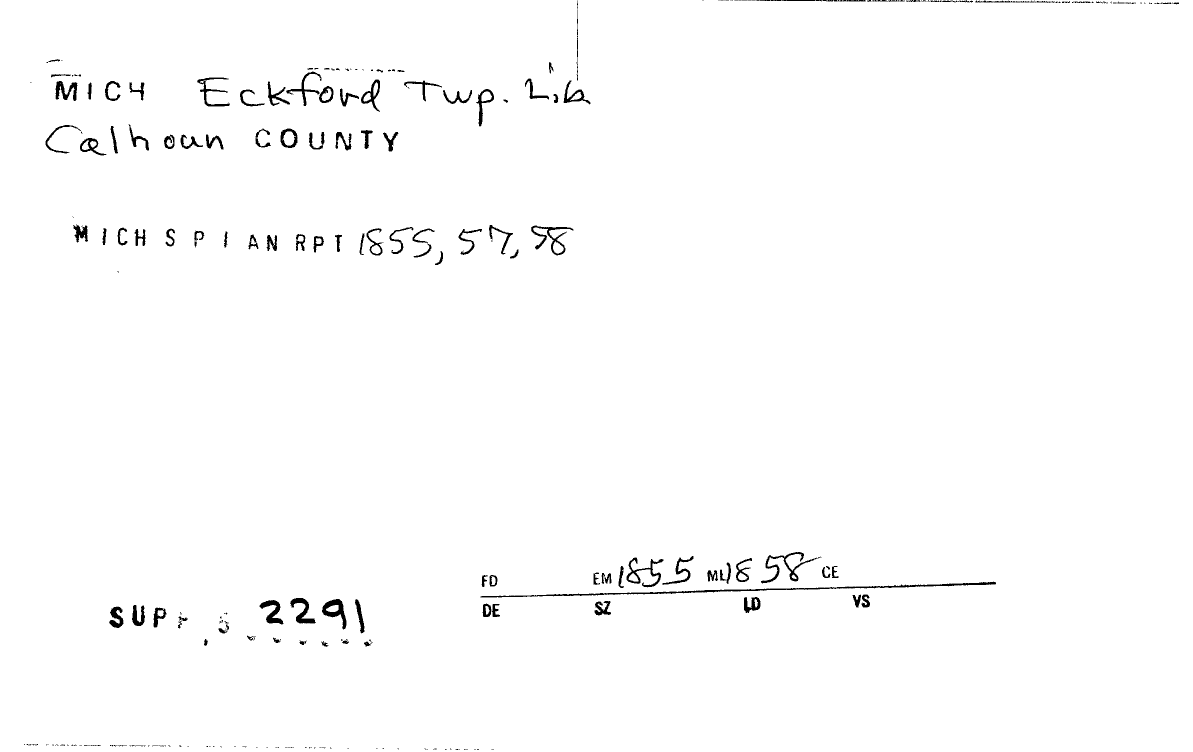 MICH Eckford Twp. Lib
Calhoun COUNTY
MICH S P I AN RPT 1855, 57, 58
FD EM 1855 ML 1858 CE
DE SZ LD VS
SUP 2291